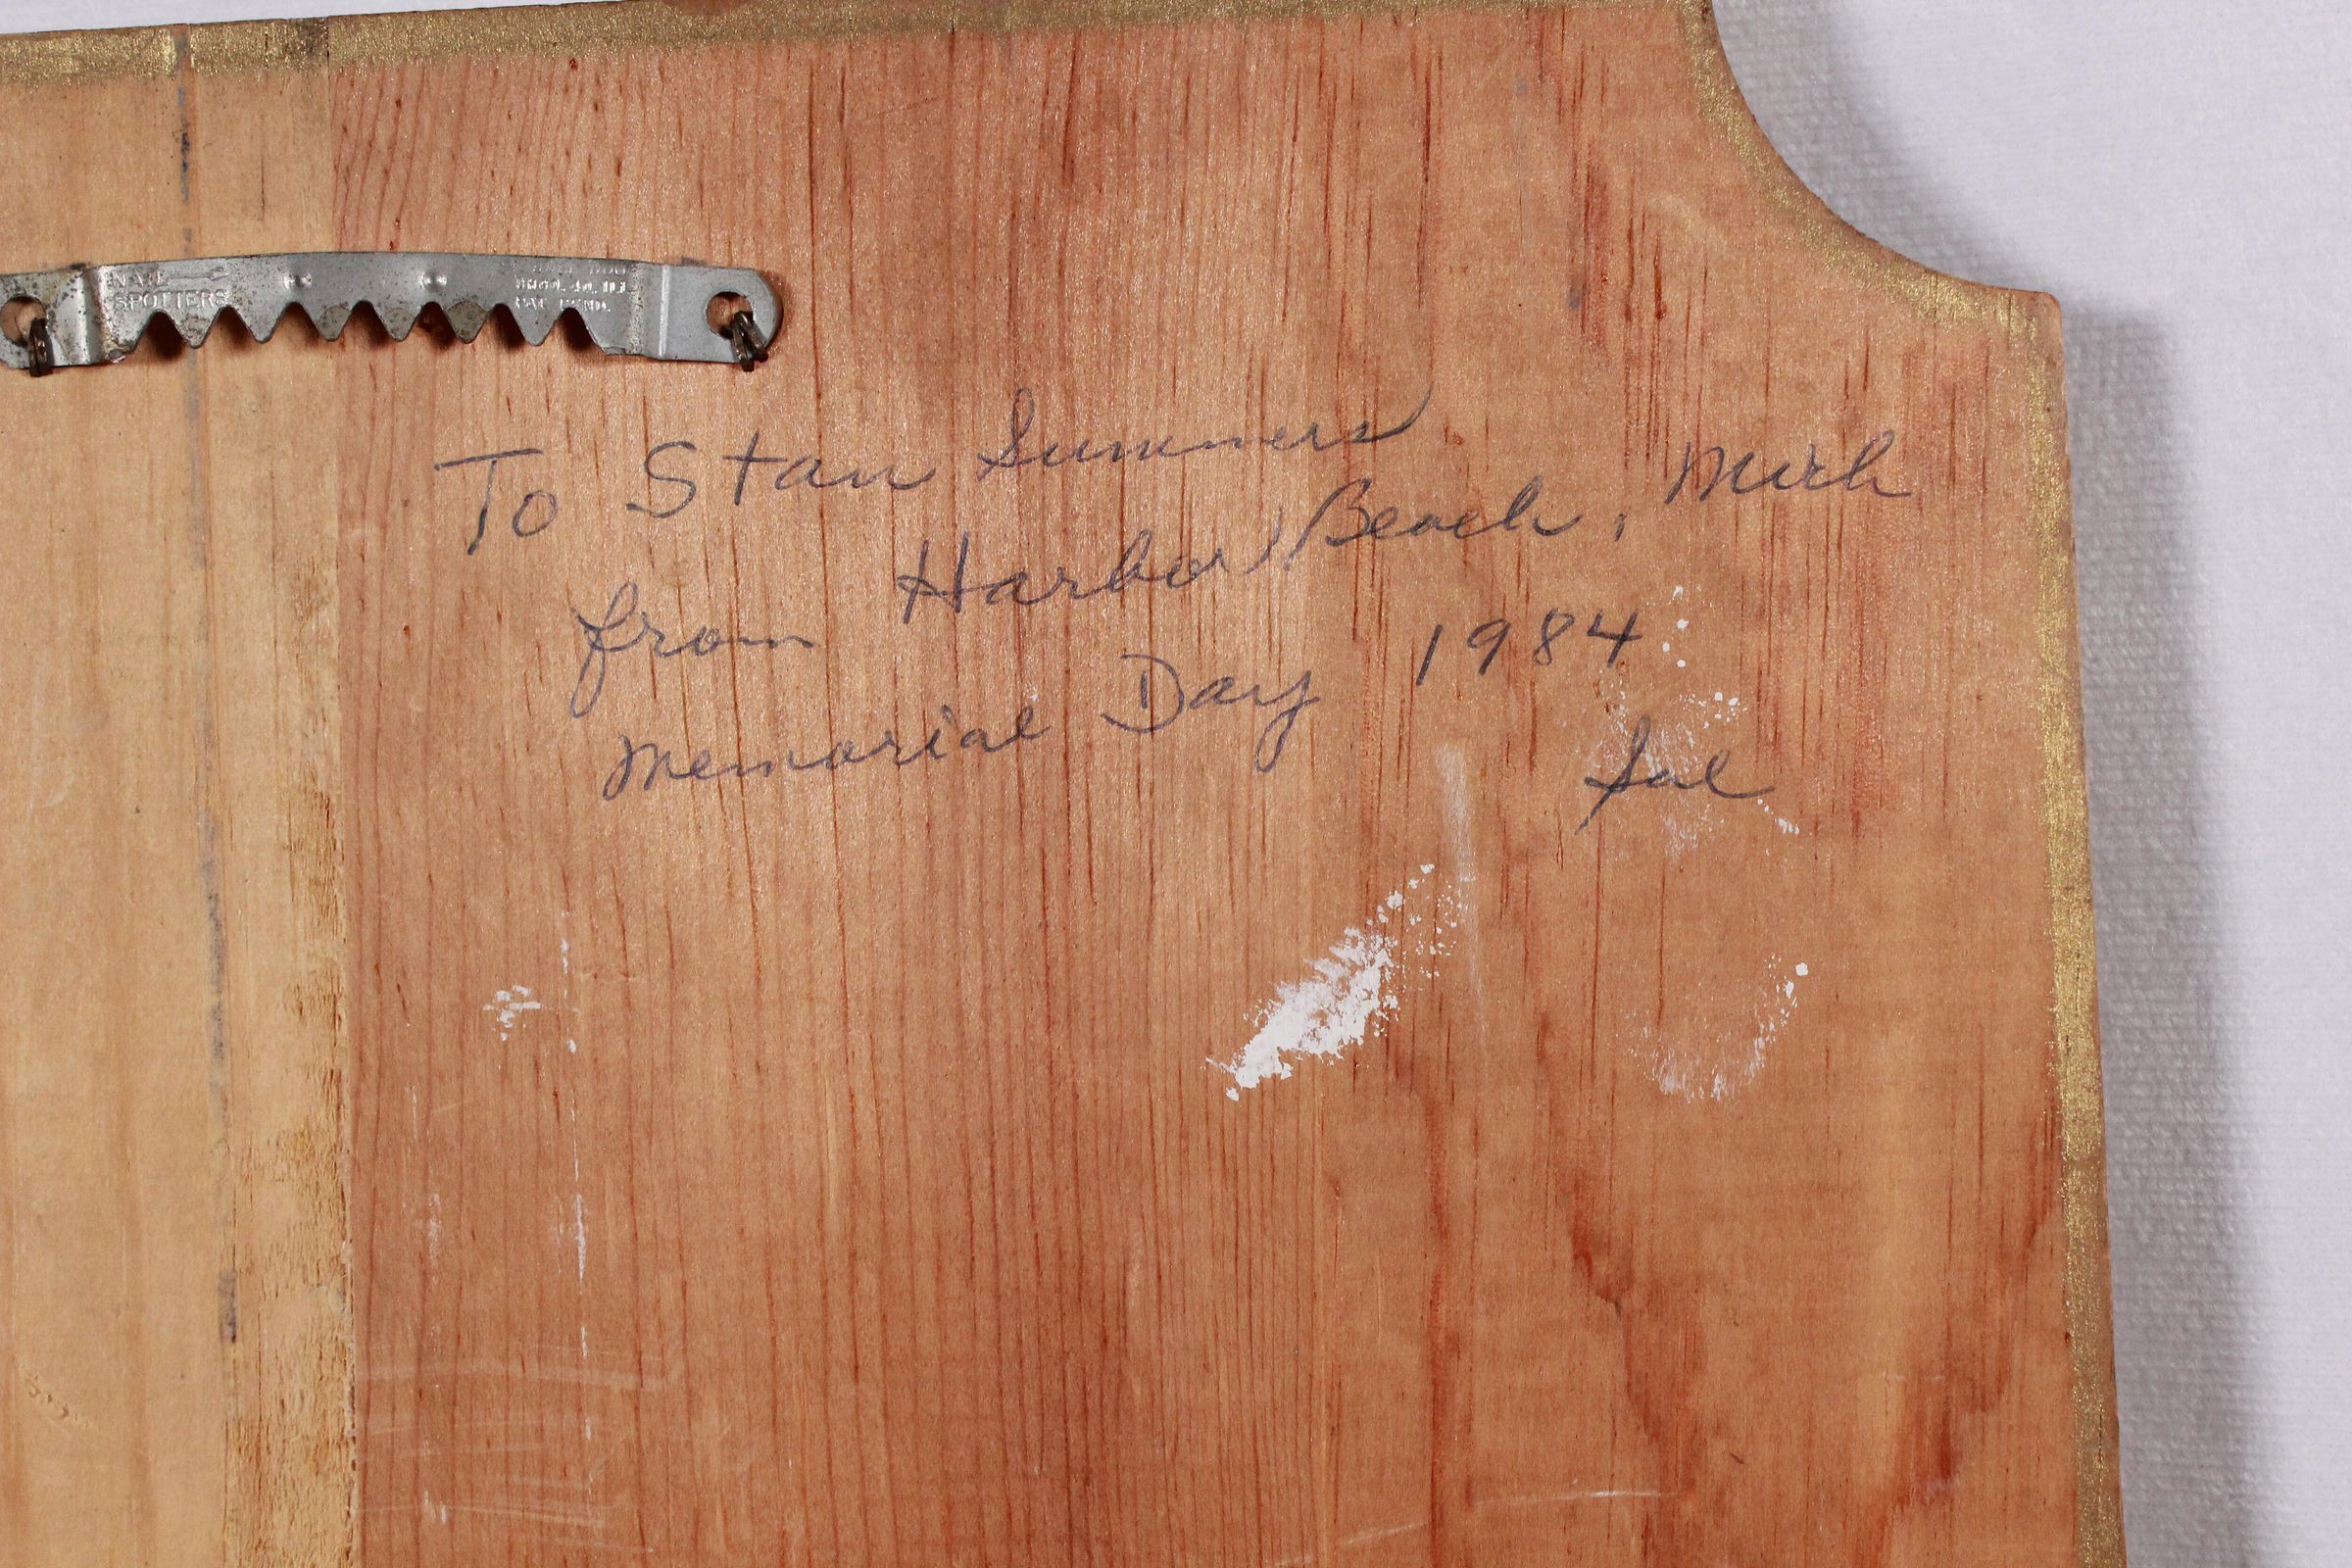 NAIL
SPOTTERS
PAT. PEND.
To Stan Summers
from Harbor Beach, Mich
Memorial Day 1984
Sal